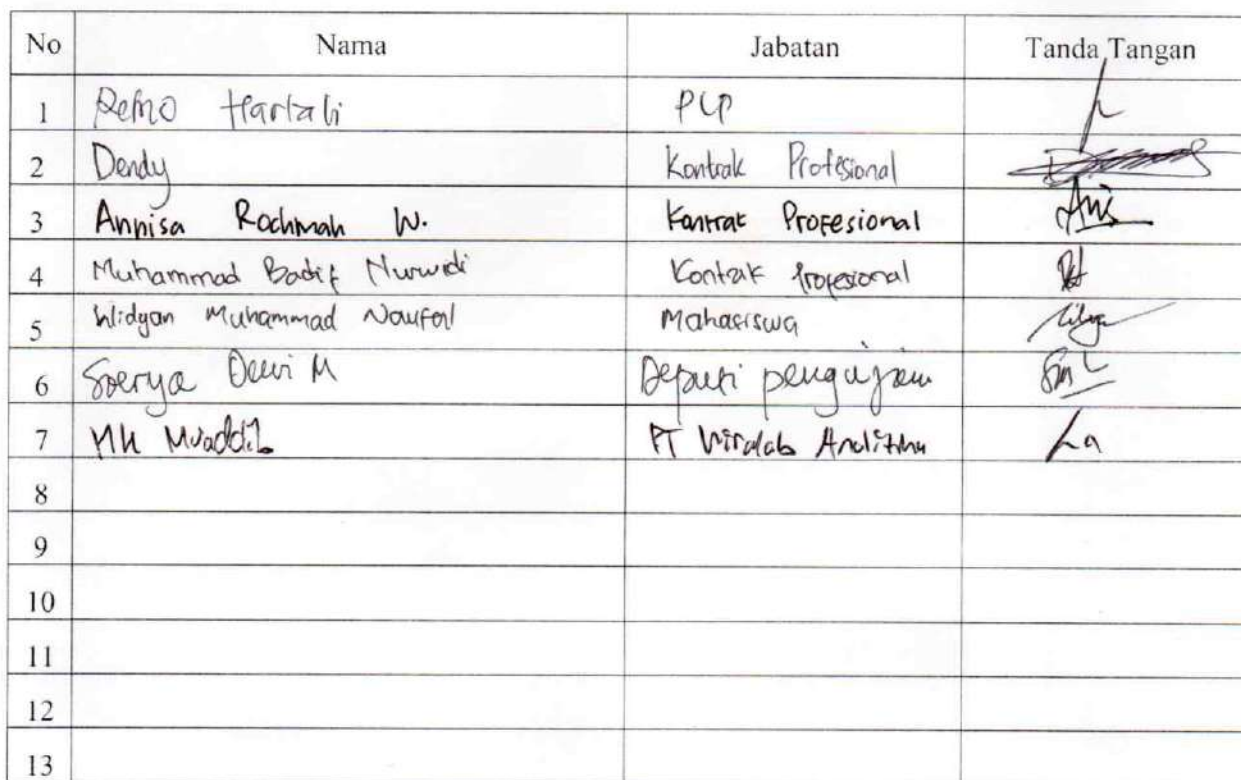 No Nama Jabatan Tanda Tangan
1 Retno Hartati PLP
2 Dendy Kontrak Profesional
3 Annisa Rochmah W. Kontrak Profesional
4 Muhammad Badif Nurwidi Kontrak Profesional
5 Widyan Muhammad Naufal Mahasiswa
6 Soerya Dewi M Deputi pengujian
7 MH Muaddib PT Viralab Analitika
8
9
10
11
12
13